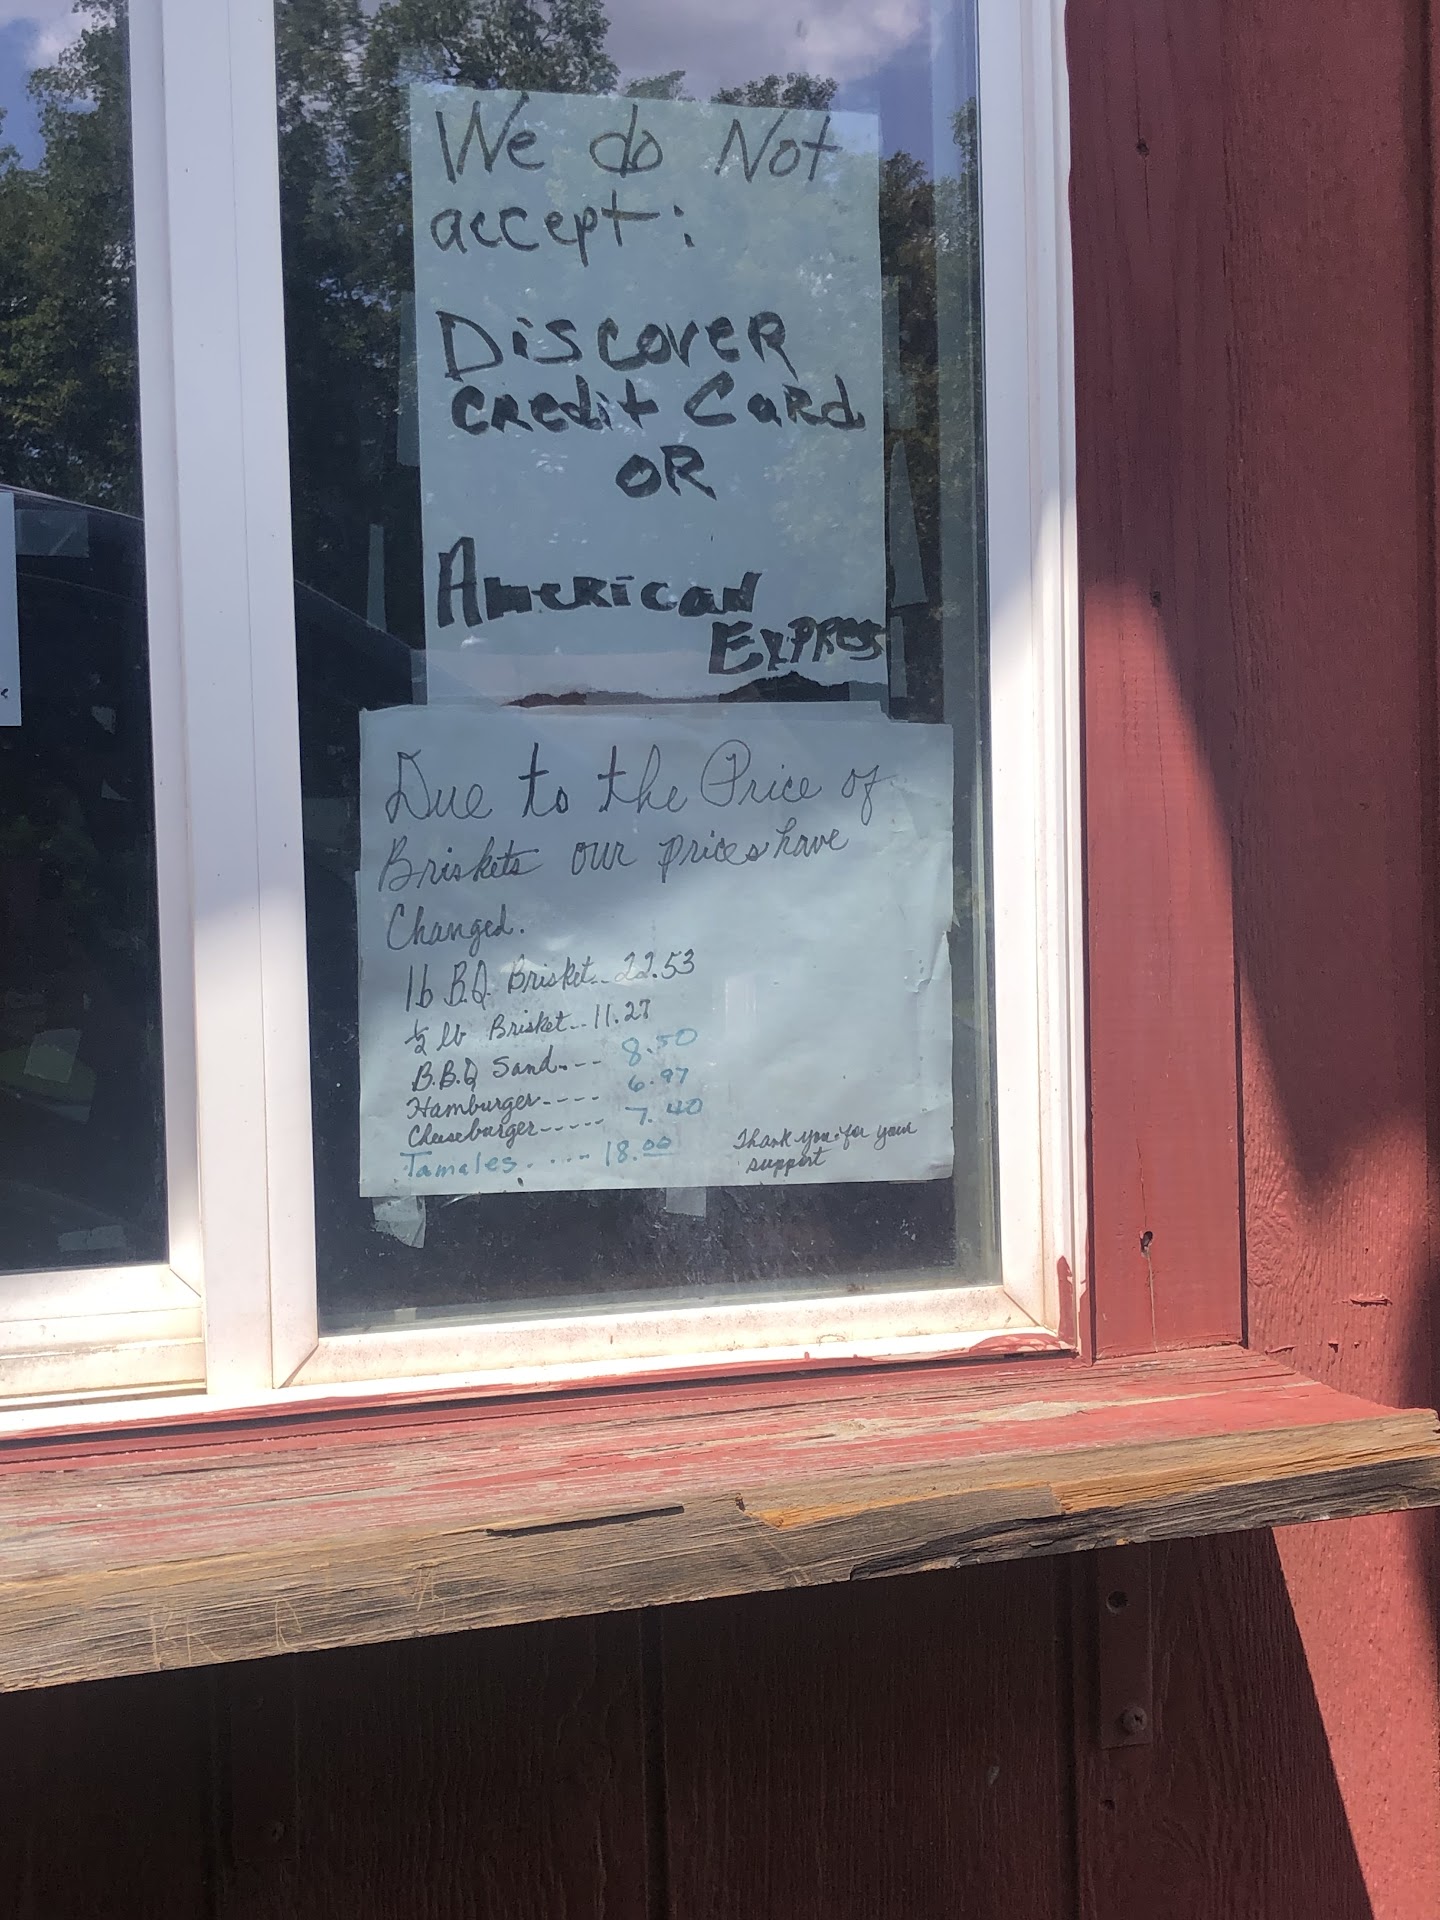 We do Not
accept:
Discover
Credit Card
OR
American
Express
Due to the Price of
Briskets our prices have
Changed.
1 lb B.Q. Brisket.. 22.53
½ lb Brisket.. 11.27
B.B.Q Sand.--- 8.50
Hamburger---- 6.97
Cheeseburger----- 7.40
Tamales. .... 18.00
Thank you for your
support